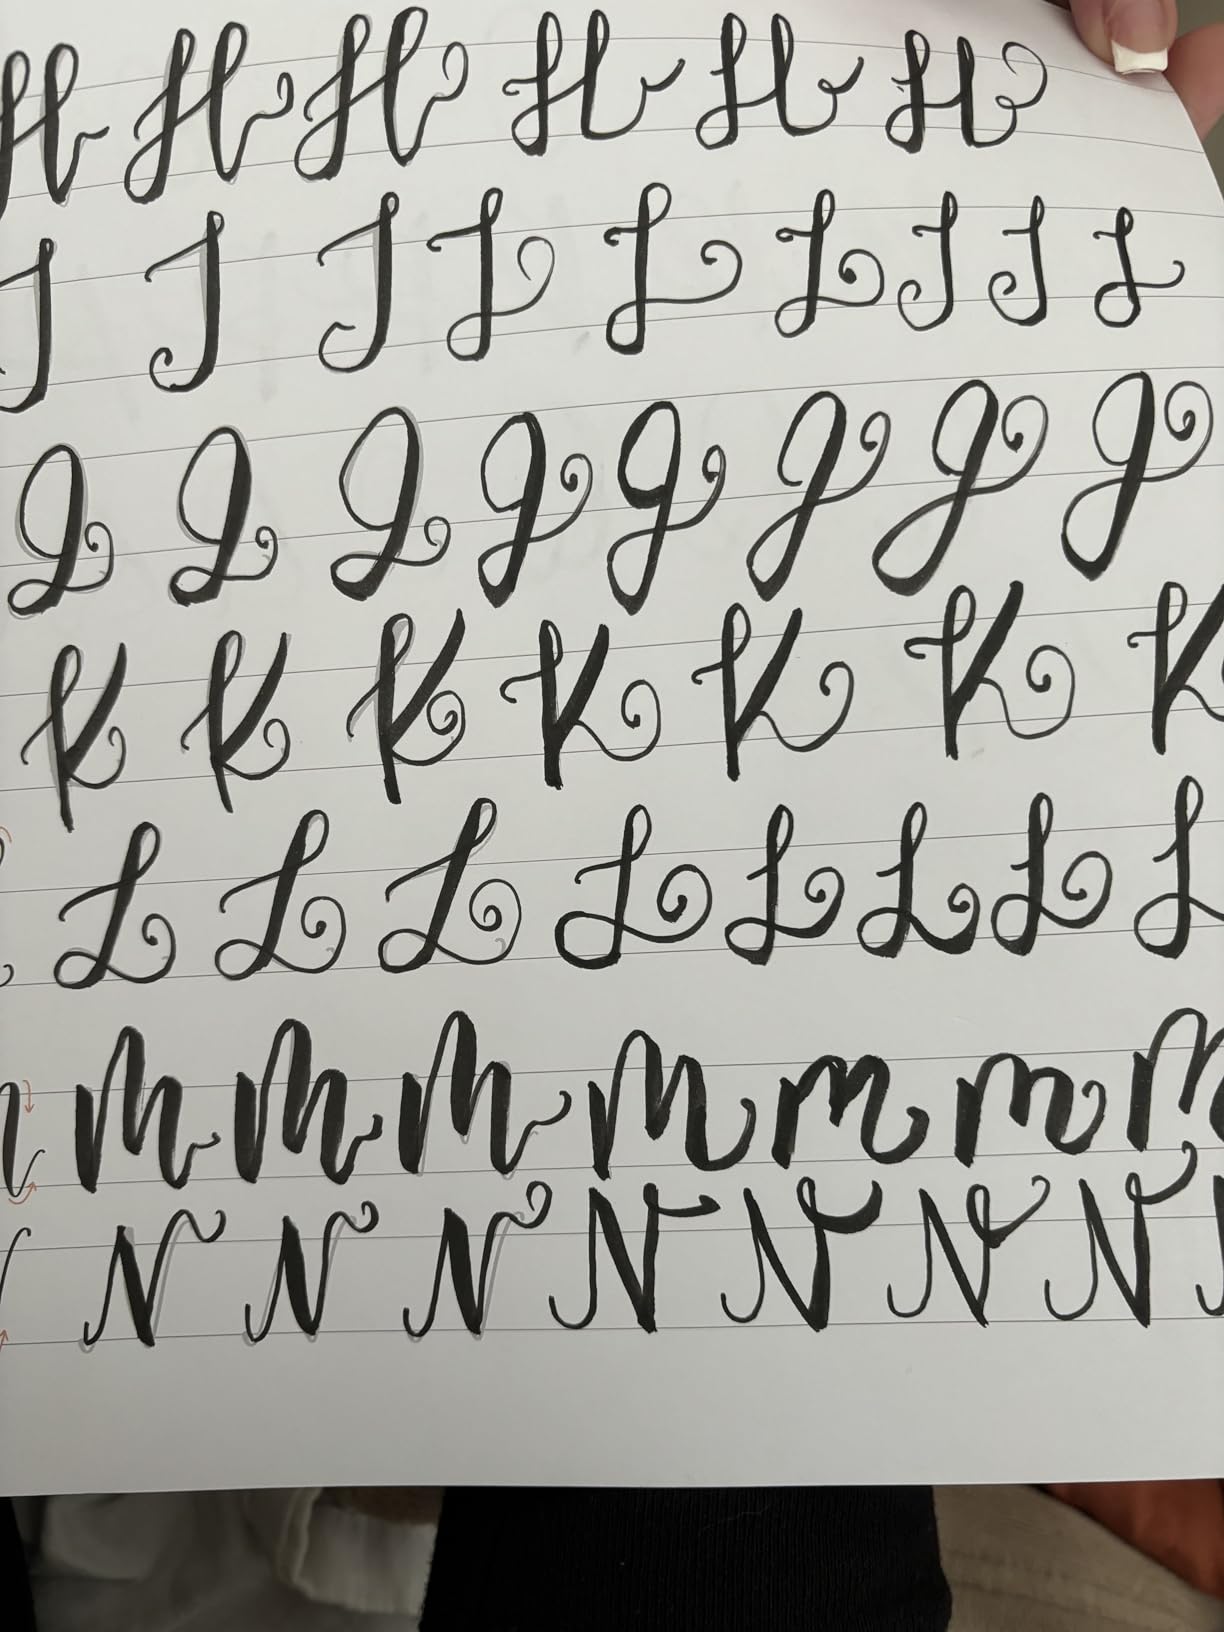 H H H H H H
I I I I I I I I I
J J J J J J J J
K K K K K K K
L L L L L L L L
M M M M M M M
N N N N N N N